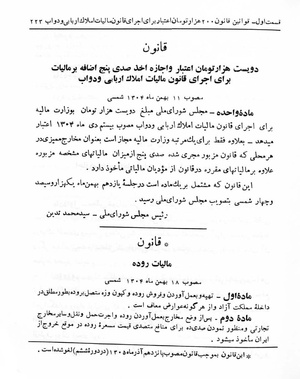 قسمت اول - قوانین قانون ۲۰۰ هزار تومان اعتبار برای اجرای قانون مالیات املاک اربابی و دواب ۲۲۳
قانون
دویست هزار تومان اعتبار و اجازه اخذ صدی پنج اضافه بر مالیات
برای اجرای قانون مالیات املاک اربابی و دواب
مصوب ۱۱ بهمن ماه ۱۳۰۴ شمسی
مادهٔ واحده - مجلس شورای ملی مبلغ دویست هزار تومان بوزارت مالیه
برای اجرای قانون مالیات املاک اربابی و دواب مصوب بیستم دی ماه ۱۳۰۴ اعتبار
میدهد - بعلاوه فقط برای یک مرتبه وزارت مالیه مجاز است بعنوان مخارج ممیزی در
هر محلی که قانون مزبور مجری شده صدی پنج از میزان مالیاتهای مشخصه مزبوره
علاوه بر مالیاتهای مقرره در قانون از مؤدیان مالیاتی مأخوذ دارد.
این قانون که مشتمل بر یک ماده است در جلسهٔ یازدهم بهمن ماه یکهزار و سیصد
و چهار شمسی بتصویب مجلس شورای ملی رسید.
رئیس مجلس شورای ملی - سید محمد تدین
* قانون
مالیات روده
مصوب ۱۸ بهمن ماه ۱۳۰۴ شمسی
مادهٔ اول - تهیه و بعمل آوردن و فروش روده و کیون وزه متصل بروده بطور مطلق در
داخلهٔ مملکت آزاد و از هر گونه عوارض معاف است.
مادهٔ دوم - پس از وضع مخارج بعمل آوردن روده و اجرت حمل و نقل و سایر مخارج
تجارتی و منظور نمودن صدی ده برای منافع متصدی قیمت عمدهٔ روده در موقع خروج از
ایران مأخوذ میشود.
* این قانون بموجب قانون مصوب پانزدهم آذر ماه ۱۳۰۵ (در دورهٔ ششم) لغو شده است.